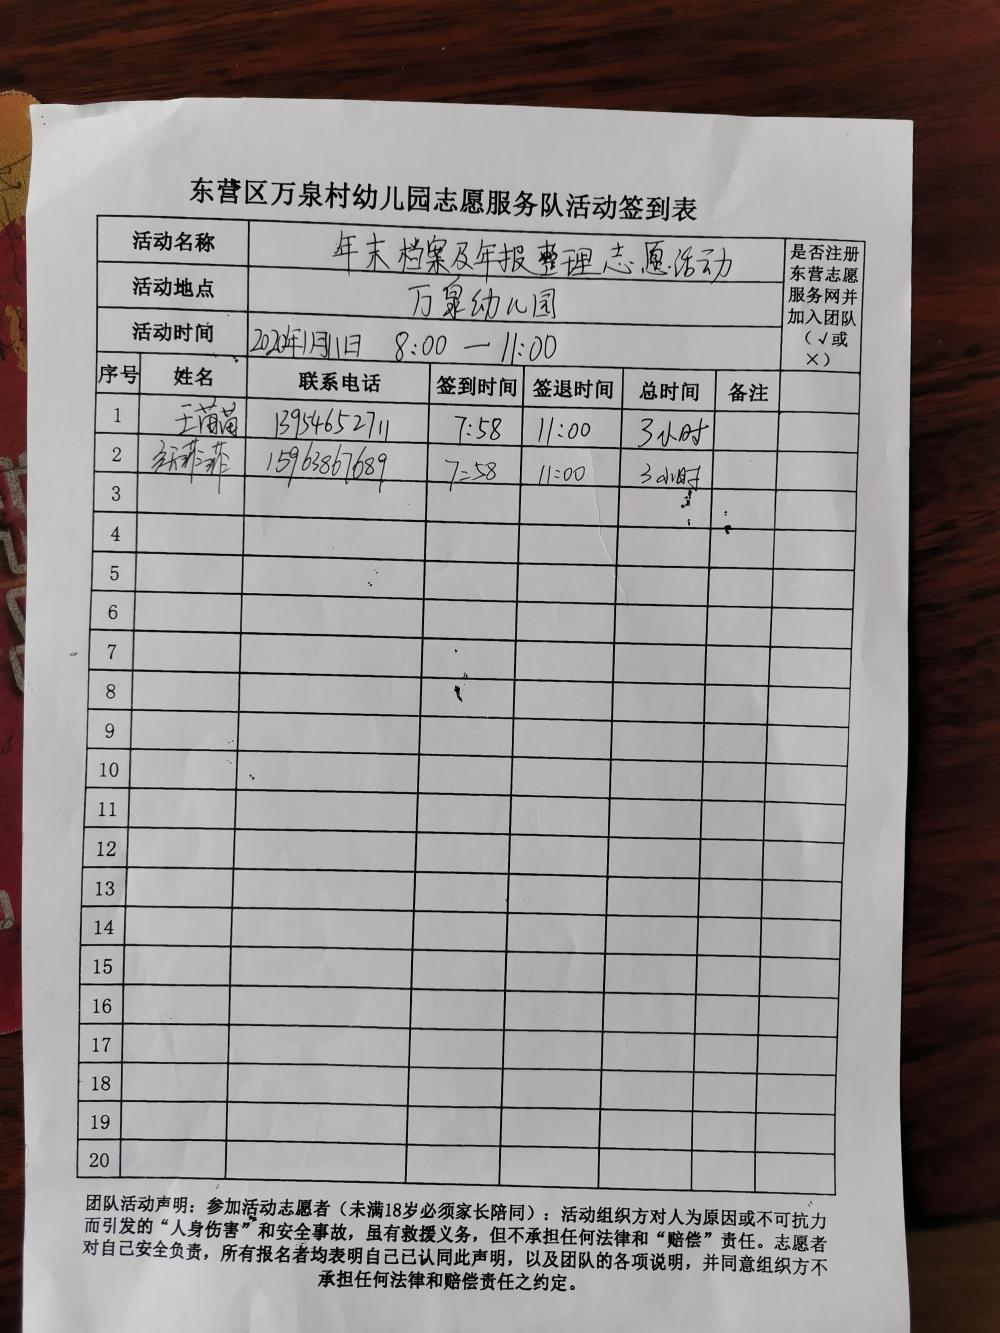 东营区万泉村幼儿园志愿服务队活动签到表
活动名称 年末档案及年报整理志愿活动
是否注册
东营志愿
服务网并
加入团队
（√或
×）
活动地点 万泉幼儿园
活动时间 2020年1月11日 8:00 — 11:00
序号 姓名 联系电话 签到时间 签退时间 总时间 备注
1 王苗苗 13954652711 7:58 11:00 3小时
2 菲菲 15963867689 7:58 11:00 3小时
3
4
5
6
7
8
9
10
11
12
13
14
15
16
17
18
19
20
团队活动声明：参加活动志愿者（未满18岁必须家长陪同）：活动组织方对人为原因或不可抗力
而引发的“人身伤害”和安全事故，虽有救援义务，但不承担任何法律和“赔偿”责任。志愿者
对自己安全负责，所有报名者均表明自己已认同此声明，以及团队的各项说明，并同意组织方不
承担任何法律和赔偿责任之约定。